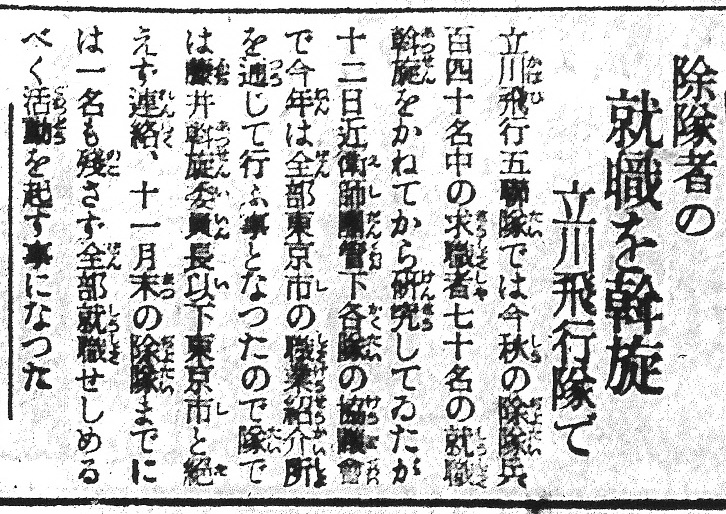 除隊者の
就職を斡旋
立川飛行隊で
立川飛行五聯隊では今秋の除隊兵
百四十名中の求職者七十名の就職
斡旋をかねてから研究してゐたが
十二日近衛師團管下各隊の協議會
で今年は全部東京市の職業紹介所
を通じて行ふ事となつたので隊で
は藤井斡旋委員長以下東京市と絶
えず連絡、十一月末の除隊までに
は一名も残さず全部就職せしめる
べく活動を起す事になつた